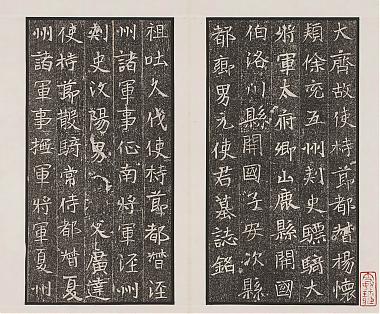 大齊故使持節都督楊懷
潁徐兗五州刾史驃騎大
將軍太府卿山鹿縣開國
伯洛川縣開國子安次縣
都鄉男元使君墓誌銘
祖吐久伐使持節都督涇
州諸軍事征南將軍涇州
刾史汾陽男父兴廣達
使持節散騎常侍都督夏
州諸軍事撫軍將軍夏州